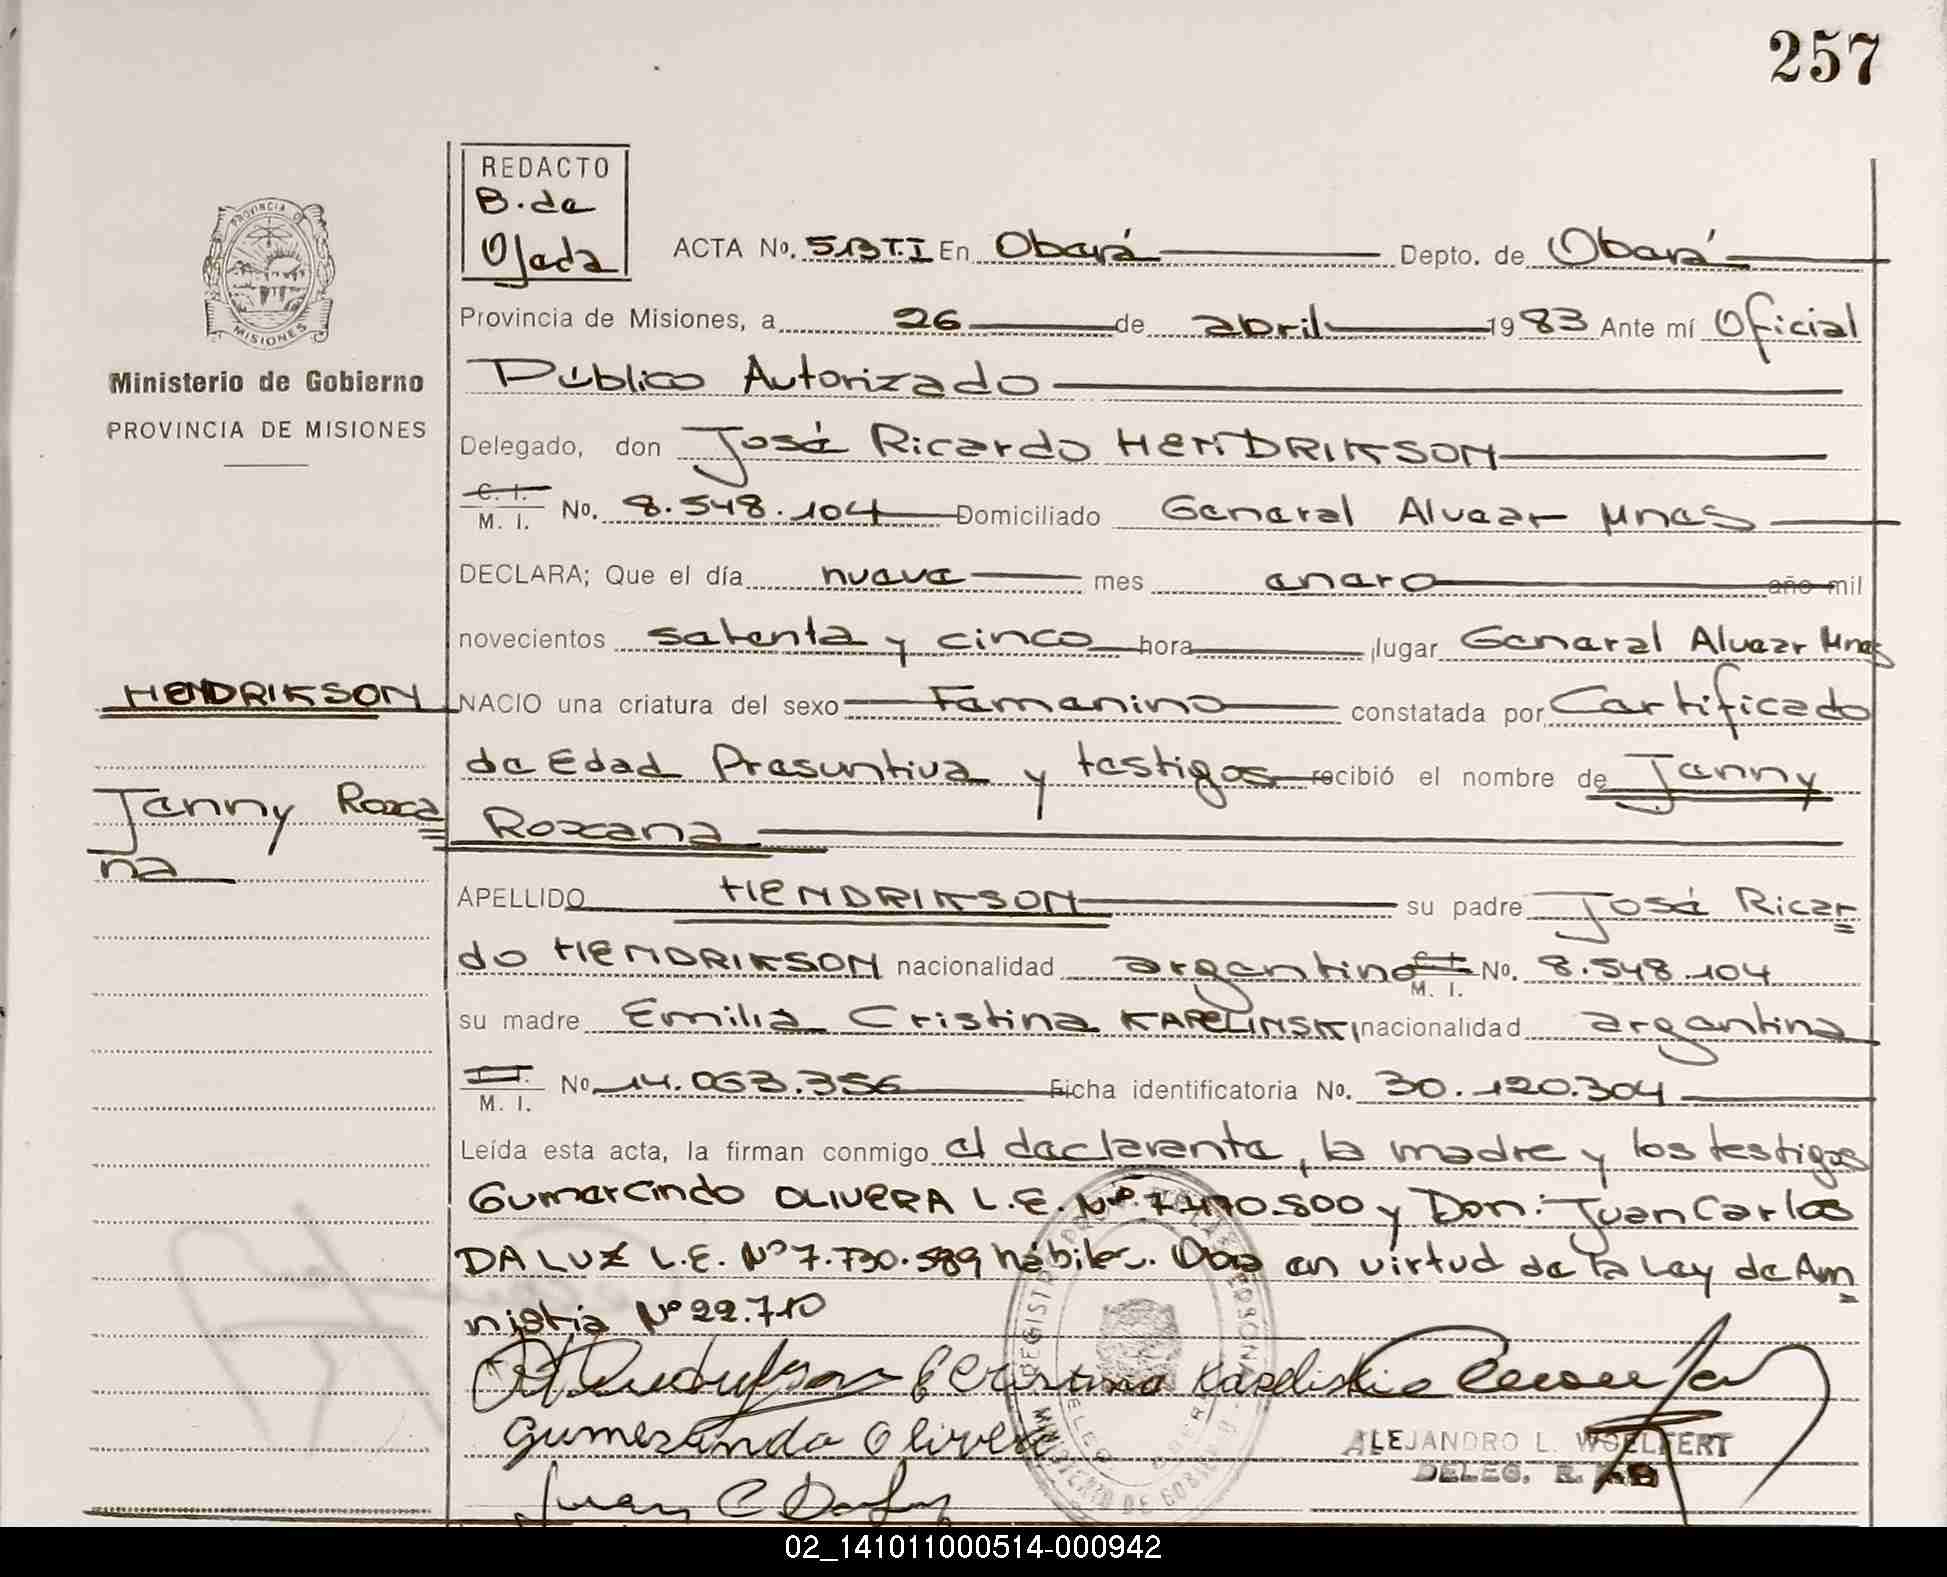 257
REDACTO
B. de
Ojeda
ACTA No. 513 T.I En Oberá Depto. de Oberá
Provincia de Misiones, a 26 de abril 1983 Ante mí Oficial
Público Autorizado
Ministerio de Gobierno
PROVINCIA DE MISIONES
Delegado, don José Ricardo HENDRIKSON
C. I.
M. I. No. 8.548.104 Domiciliado General Alvear Mnes
DECLARA; Que el día nueve mes enero año mil
novecientos setenta y cinco hora lugar General Alvear Mnes
HENDRIKSON
NACIO una criatura del sexo Femenino constatada por Certificado
de Edad Presuntiva y testigos recibió el nombre de Jenny
Jenny Roxa
na
Roxana
APELLIDO HENDRIKSON su padre José Ricar
do HENDRIKSON nacionalidad argentino C. I.
M. I. No. 8.548.104
su madre Emilia Cristina KAPELINSKI nacionalidad argentina
M. I. No 14.063.356 Ficha identificatoria No. 30.120.304
Leída esta acta, la firman conmigo el declarante, la madre y los testigos
Gumarcindo OLIVERA L.E. Nº 7.470.500 y Don: Juan Carlos
DA LUZ L.E. Nº 7.730.589 hábiles. Obra en virtud de la Ley de Am
nistia Nº 22.710
Cristina
Gumersindo Olivera
ALEJANDRO L. WOELFERT
DELEG.
Juan C
PROVINCIA DE
MISIONES
02_141011000514-000942